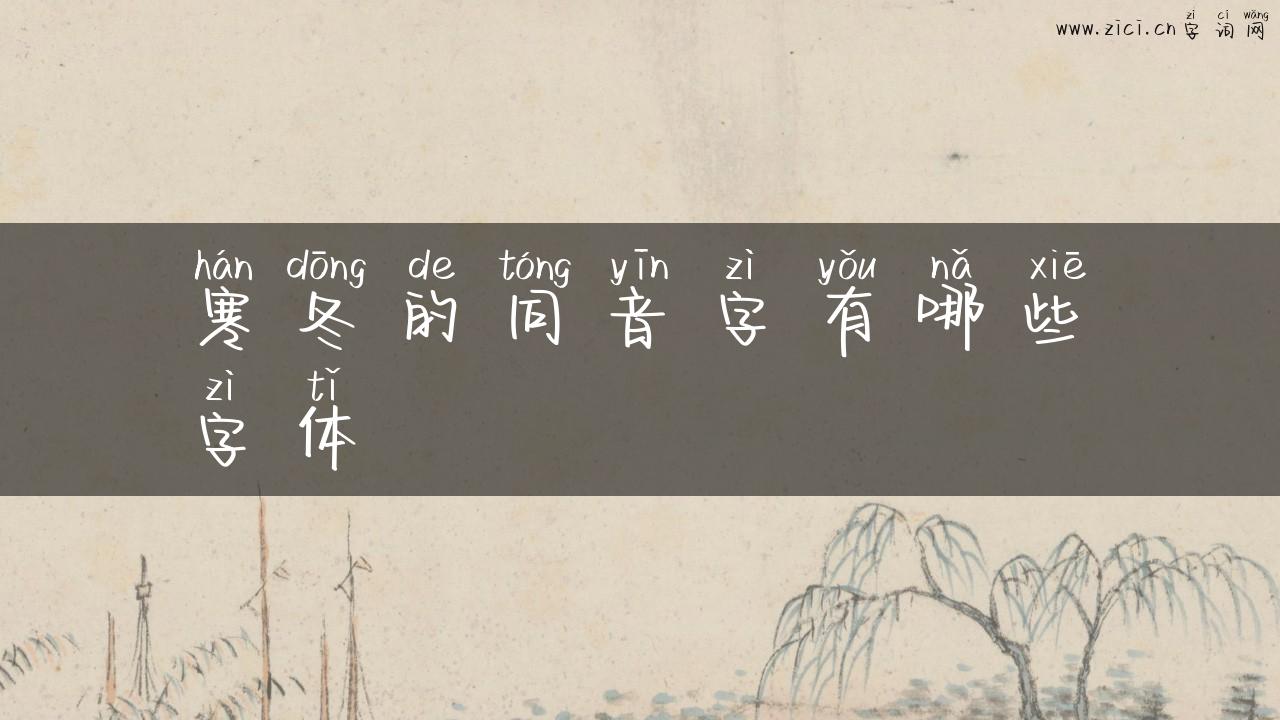 zì cí wǎng
www.zici.cn 字词网
hán dōng de tóng yīn zì yǒu nǎ xiē
寒冬的同音字有哪些
zì tǐ
字体